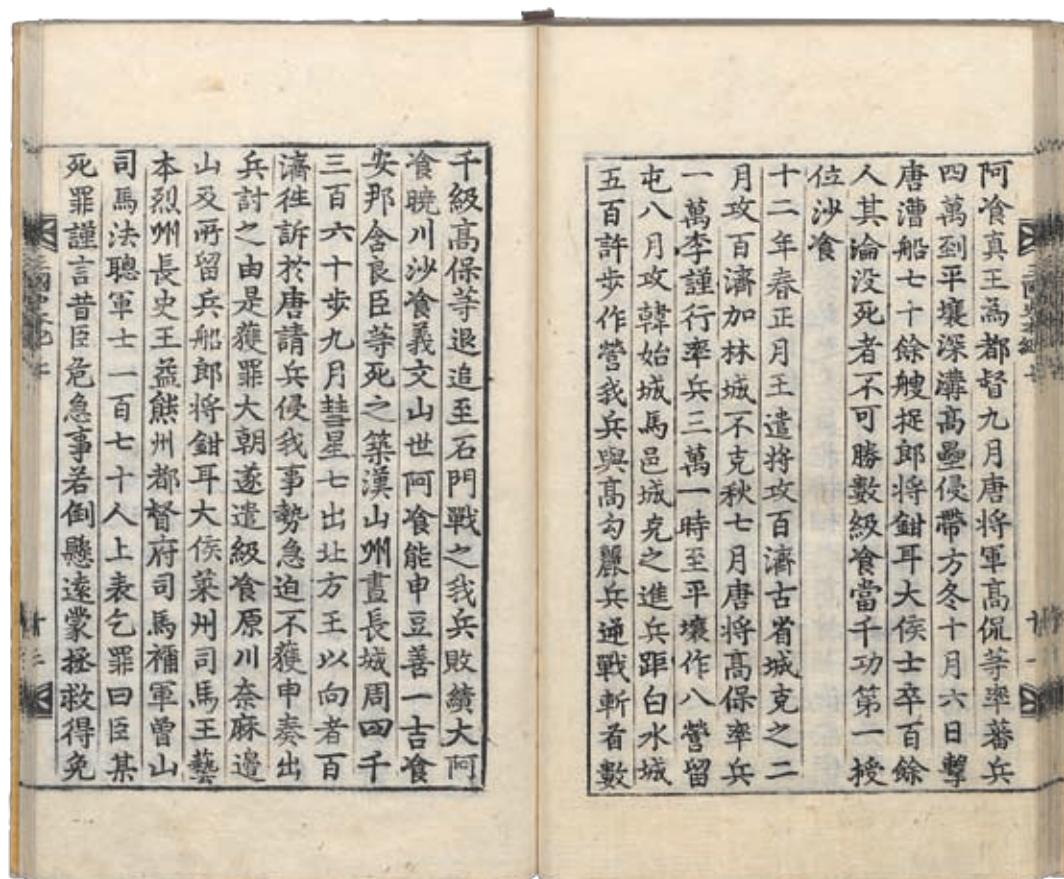 阿飡真王為都督九月唐將軍高侃等率蕃兵
四萬到平壤深溝高壘侵帶方冬十月六日擊
唐漕船七十餘艘捉郎將鉗耳大侯士卒百餘
人其淪没死者不可勝數級飡當千功第一授
位沙飡
十二年春正月王遣將攻百濟古省城克之二
月攻百濟加林城不克秋七月唐將高保率兵
一萬李謹行率兵三萬一時至平壤作八營留
屯八月攻韓始城馬邑城克之進兵距白水城
五百許步作營我兵與高勾麗兵逆戰斬首數
千級高保等退追至石門戰之我兵敗績大阿
飡曉川沙飡義文山世阿飡能申豆善一吉飡
安那含良臣等死之築漢山州晝長城周四千
三百六十步九月彗星七出北方王以向者百
濟徃訴於唐請兵侵我事勢急迫不獲申奏出
兵討之由是獲罪大朝遂遣級飡原川奈麻邊
山及所留兵船郎將鉗耳大侯萊州司馬王藝
本烈州長史王益熊州都督府司馬禰軍曾山
司馬法聰軍士一百七十人上表乞罪曰臣某
死罪謹言昔臣危急事若倒懸遠蒙拯救得免